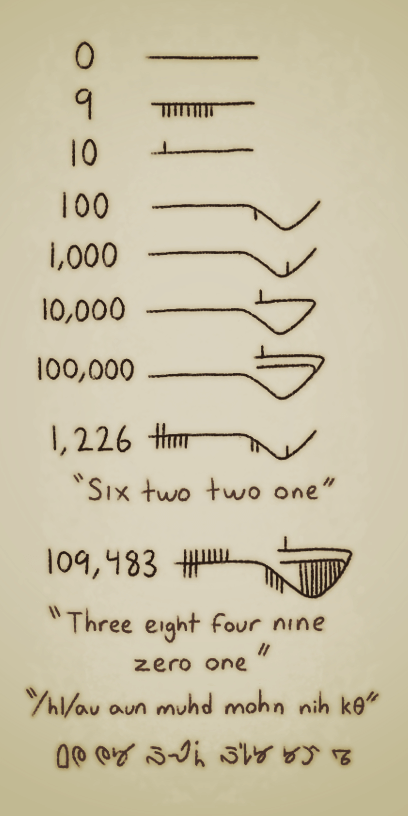 0
9
10
100
1,000
10,000
100,000
1,226
"Six two two one"
109,483
"Three eight four nine
zero one"
"/hl/au aun muhd mohn nih kθ"